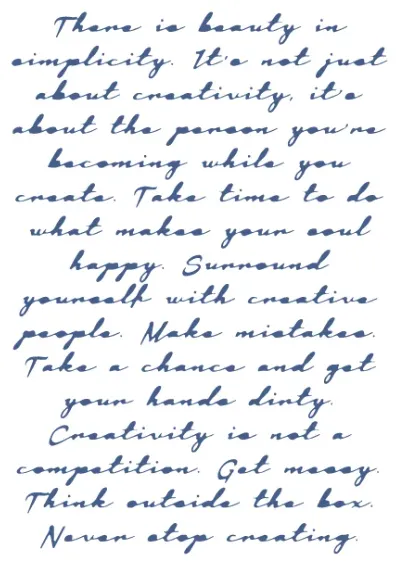 There is beauty in
simplicity. It's not just
about creativity, it's
about the person you're
becoming while you
create. Take time to do
what makes your soul
happy. Surround
yourself with creative
people. Make mistakes.
Take a chance and get
your hands dirty.
Creativity is not a
competition. Get messy.
Think outside the box.
Never stop creating.